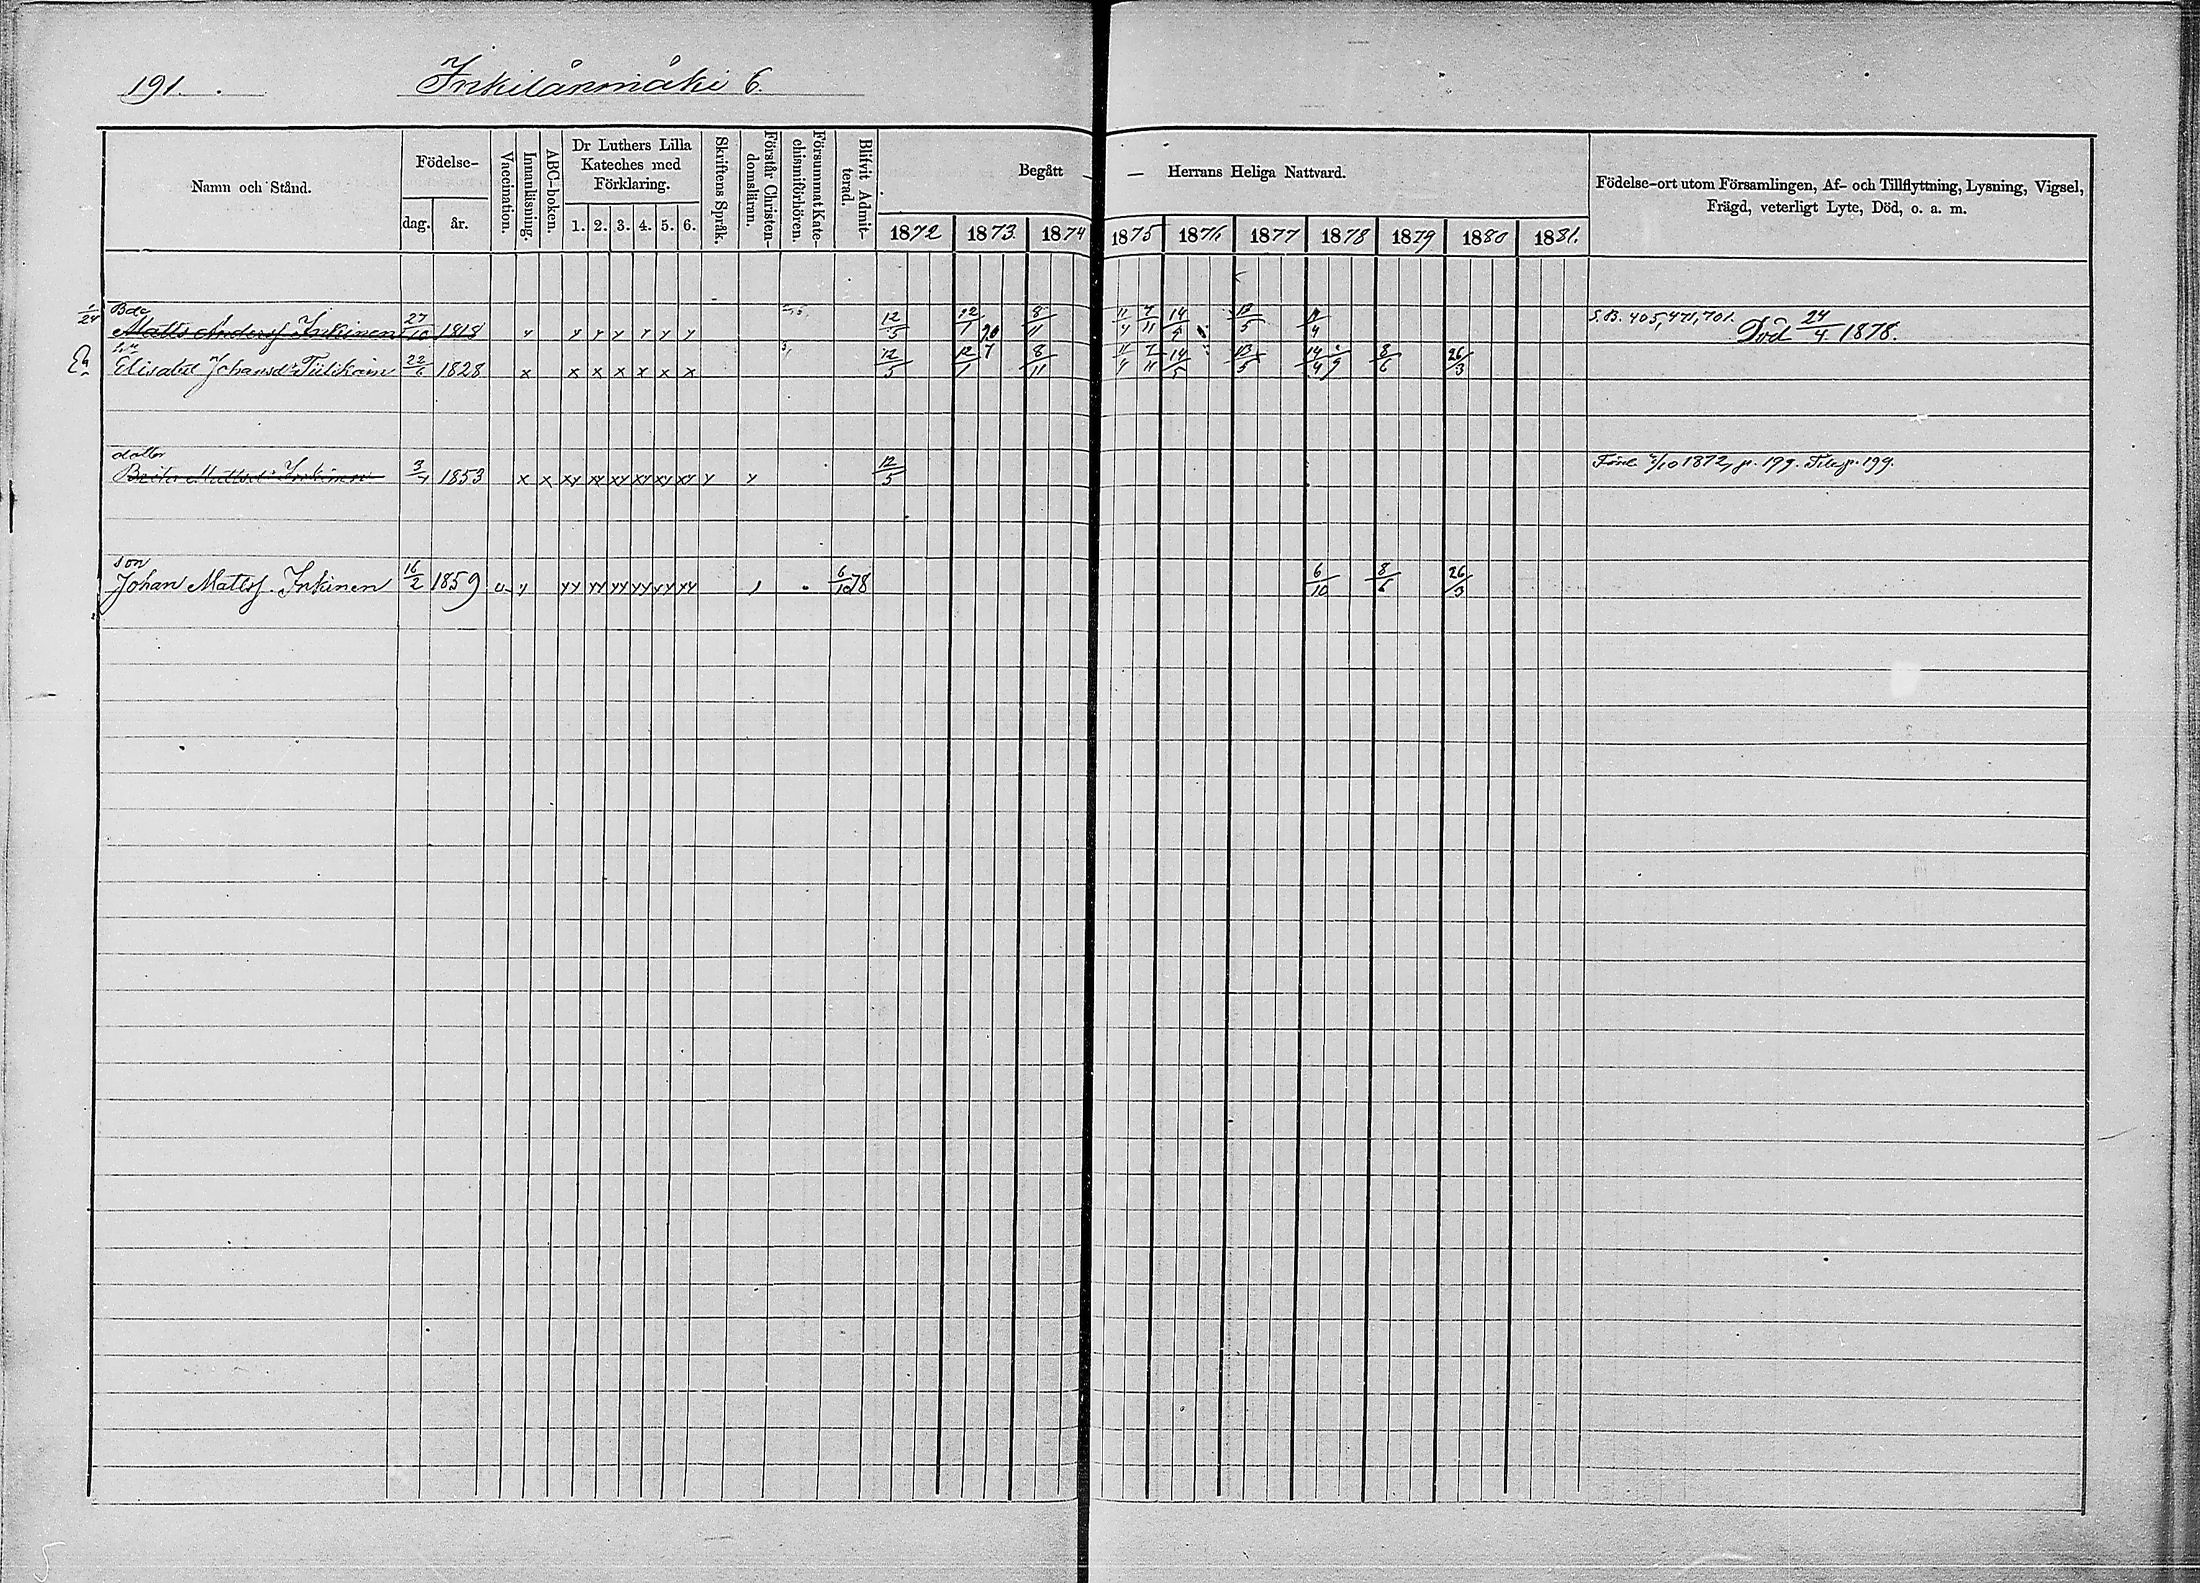 191.
Inkilänmäki 6.
Namn och Stånd.
Födelse-
dag. år.
Vaccination.
Innanläsning.
ABC-boken.
Dr Luthers Lilla
Kateches med
Förklaring.
1. 2. 3. 4. 5. 6.
Skriftens Språk.
Förstår Christen-
domsläran.
Försummat Kate-
chismiförhören.
Blifvit Admit-
terad.
Begått — — Herrans Heliga Nattvard.
1872 1873 1874 1875 1876 1877 1878 1879 1880 1881.
Födelse-ort utom Församlingen, Af- och Tillflyttning, Lysning, Vigsel,
Frägd, veterligt Lyte, Död, o. a. m.
Bde
Matts Andersf. Inkinen 27/10 1818 y y y y y y y 12/5 8/11 14/5 13/5 S.B. 405, 471, 701. Död 24/4 1878.
Elisabet Johansd. Tiilikain 22/6 1828 x x x x x x x 12/5 12/1 8/11 14/5 13/5 14/4 8/6 26/3
dotter
Brita Mattsd. Inkinen 3/4 1853 x x xy xy xy xy xy xy y y 12/5 1872, p. 199. p. 199.
son
Johan Mattsf. Inkinen 16/2 1859 v y yy yy yy yy yy yy 6/10 78 6/10 8/6 26/3